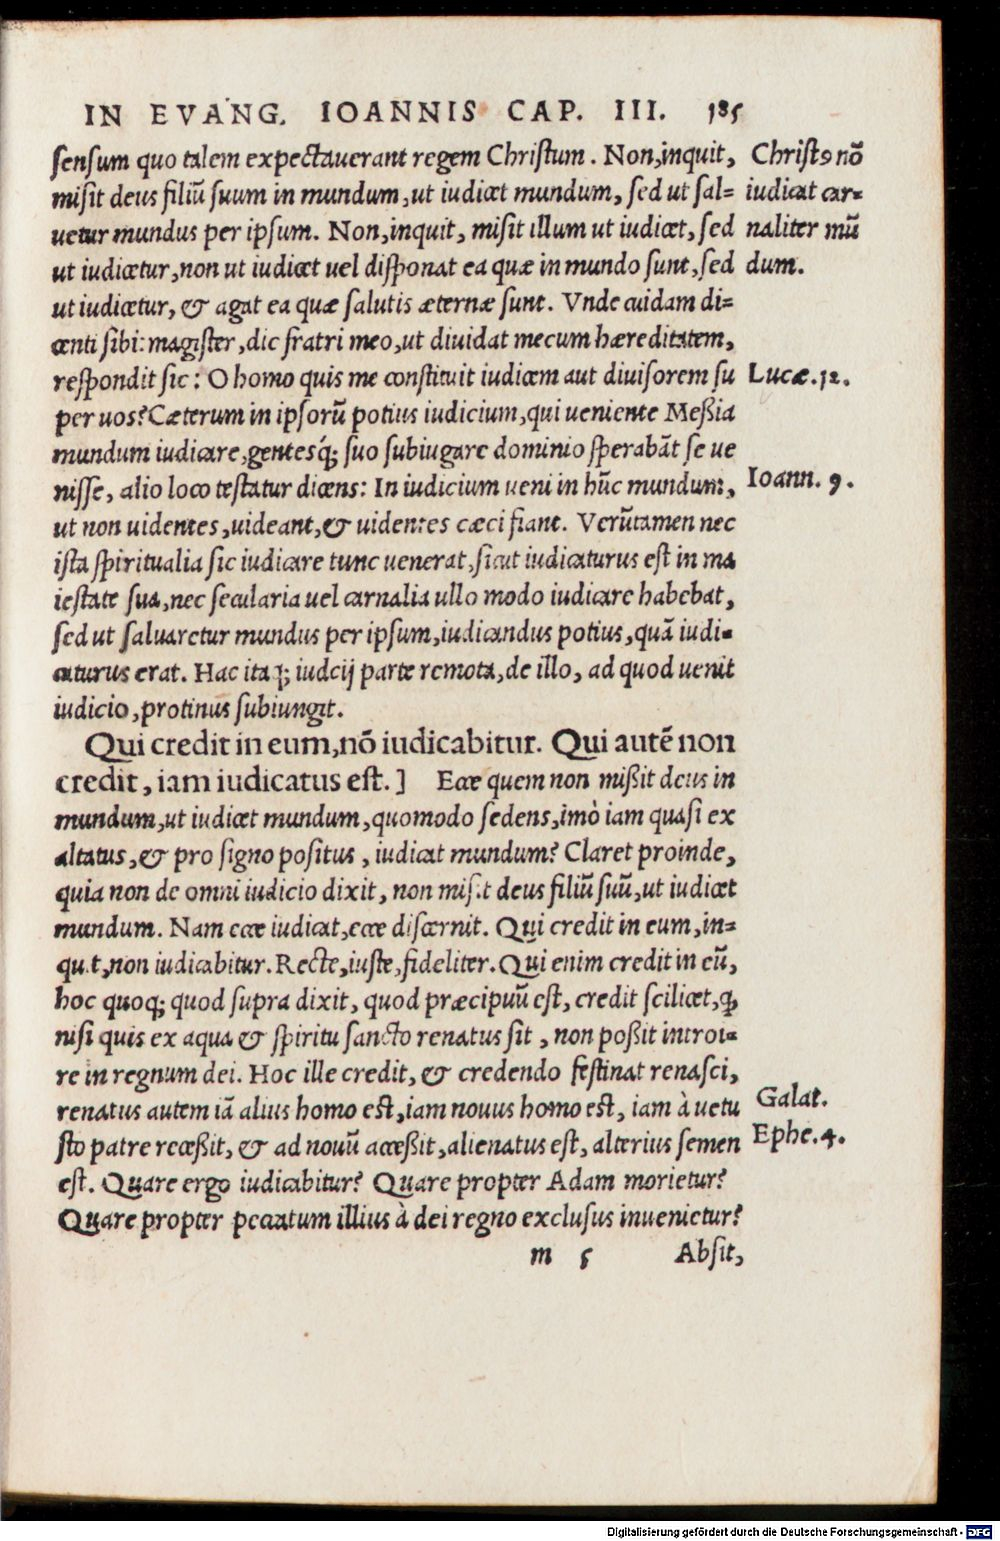 IN EVANG. IOANNIS CAP. III. 185
sensum quo talem expectauerant regem Christum. Non, inquit,
misit deus filiū suum in mundum, ut iudicet mundum, sed ut sal=
uetur mundus per ipsum. Non, inquit, misit illum ut iudicet, sed
ut iudicetur, non ut iudicet uel disponat ea quæ in mundo sunt, sed
ut iudicetur, & agat ea quæ salutis æternæ sunt. Vnde cuidam di=
centi sibi: magister, dic fratri meo, ut diuidat mecum hæreditatem,
respondit sic: O homo quis me constituit iudicem aut diuisorem su
per uos? Cæterum in ipsorū potius iudicium, qui ueniente Meßia
mundum iudicare, gentesq́; suo subiugare dominio sperabāt se ue
nisse, alio loco testatur dicens: In iudicium ueni in hūc mundum,
ut non uidentes, uideant, & uidentes cæci fiant. Verūtamen nec
ista spiritualia sic iudicare tunc uenerat, sicut iudicaturus est in ma
iestate sua, nec secularia uel carnalia ullo modo iudicare habebat,
sed ut saluaretur mundus per ipsum, iudicandus potius, quā iudi=
caturus erat. Hac itaq; iudcij parte remota, de illo, ad quod uenit
iudicio, protinus subiungit.
Qui credit in eum, nō iudicabitur. Qui autē non
credit, iam iudicatus est.] Ecce quem non mißit deus in
mundum, ut iudicet mundum, quomodo sedens, imò iam quasi ex
altatus, & pro signo positus, iudicat mundum? Claret proinde,
quia non de omni iudicio dixit, non misit deus filiū suū, ut iudicet
mundum. Nam ecce iudicat, ecce discernit. Qui credit in eum, in=
quit, non iudicabitur. Recte, iuste, fideliter. Qui enim credit in eū,
hoc quoq; quod supra dixit, quod præcipuū est, credit scilicet, ꝙ
nisi quis ex aqua & spiritu sancto renatus sit, non poßit introi=
re in regnum dei. Hoc ille credit, & credendo festinat renasci,
renatus autem iā alius homo est, iam nouus homo est, iam à uetu
sto patre receßit, & ad nouū acceßit, alienatus est, alterius semen
est. Quare ergo iudicabitur? Quare propter Adam morietur?
Quare propter peccatum illius à dei regno exclusus inuenietur?
m 5 Absit,
Christꝰ nō
iudicat car=
naliter mū
dum.
Lucæ. 12.
Ioann. 9.
Galat.
Ephe. 4.
Digitalisierung gefördert durch die Deutsche Forschungsgemeinschaft - DFG